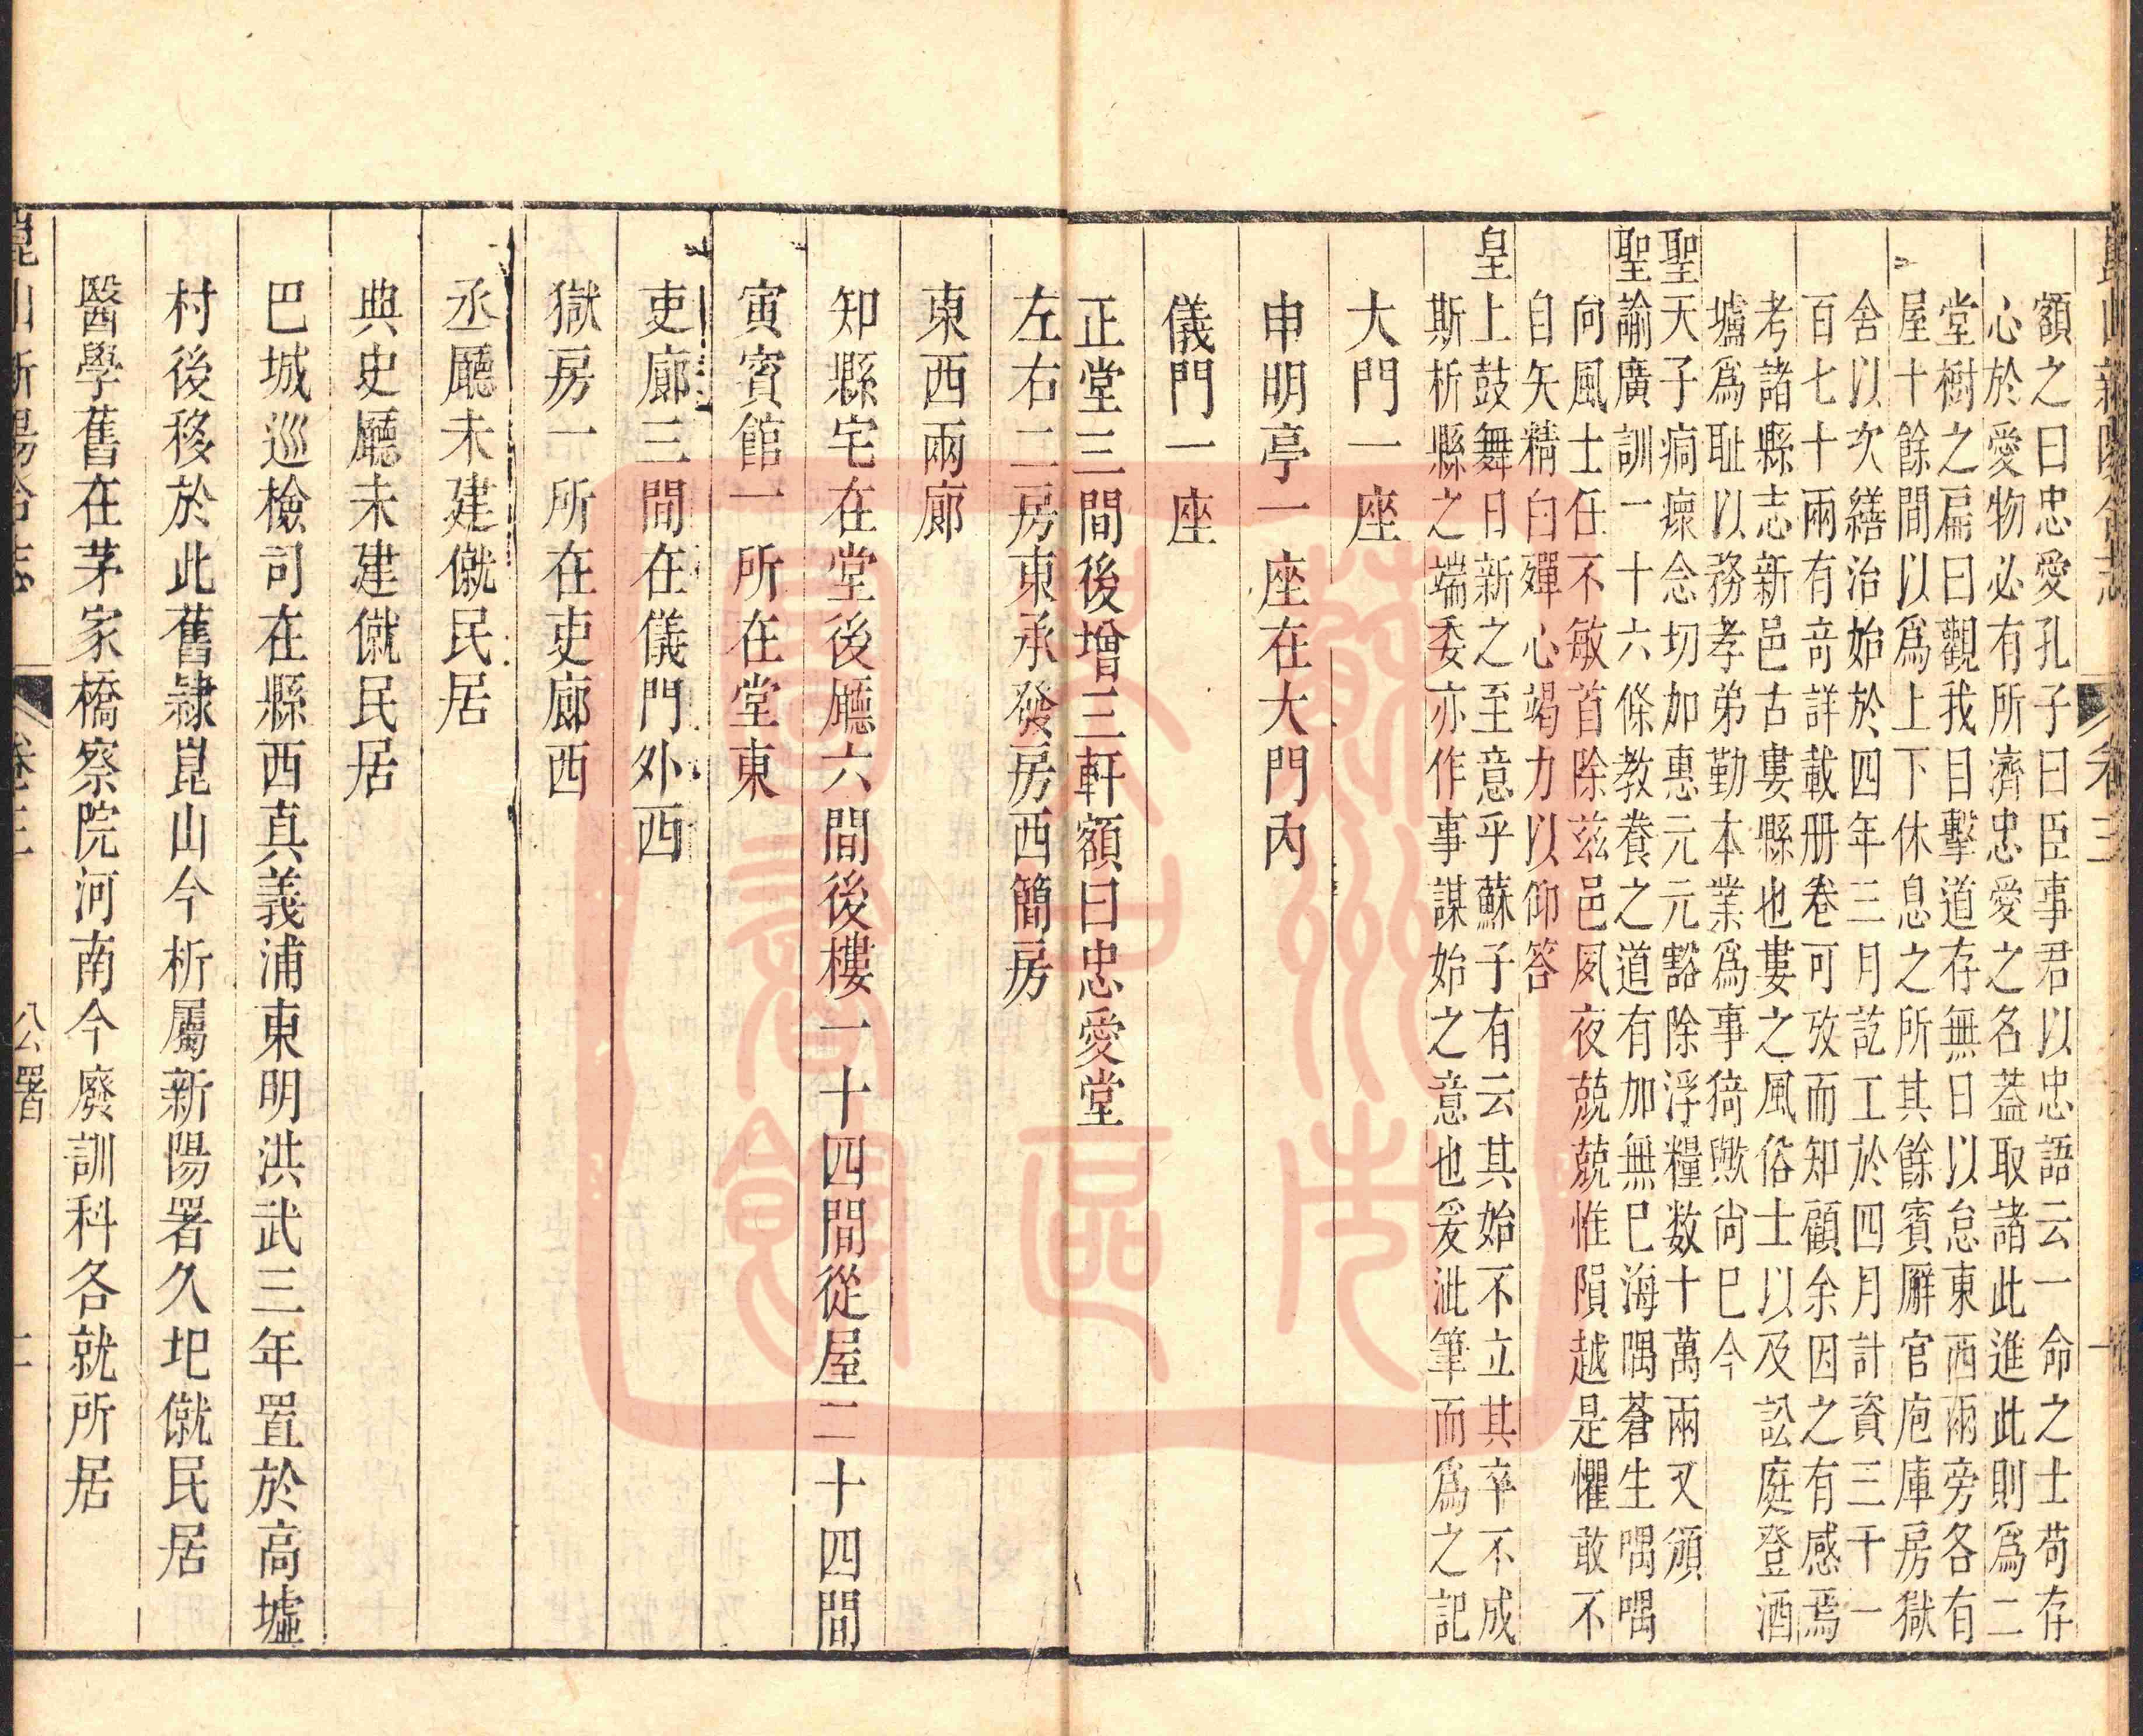 崑山新陽合志 卷三
額之曰忠愛孔子曰臣事君以忠語云一命之士苟存
心於愛物必有所濟忠愛之名蓋取諸此進此則爲二
堂樹之扁曰觀我目擊道存無日以怠東西兩旁各有
屋十餘間以爲上下休息之所其餘賓廨官庖庫房獄
舍以次繕治始於四年三月訖工於四月計資三千一
百七十兩有奇詳載册卷可攷而知顧余因之有感焉
考諸縣志新邑古婁縣也婁之風俗士以及訟庭登酒
壚爲耻以務孝弟勤本業爲事猗歟尚巳今
聖天子痌瘝念切加惠元元豁除浮糧数十萬兩又頒
聖諭廣訓一十六條教養之道有加無巳海隅蒼生喁喁
向風士任不敏首除兹邑夙夜兢兢惟隕越是懼敢不
自矢精白殫心竭力以仰答
皇上鼓舞日新之至意乎蘇子有云其始不立其卒不成
斯析縣之端委亦作事謀始之意也爰泚筆而爲之記
大門一座
申明亭一座在大門內
儀門一座
正堂三間後增三軒額曰忠愛堂
左右二房東承發房西簡房
東西兩廊
知縣宅在堂後廳六間後樓一十四間從屋二十四間
寅賓館一所在堂東
吏廊三間在儀門外西
獄房一所在吏廊西
丞廳未建僦民居
典史廳未建僦民居
巴城巡檢司在縣西真義浦東明洪武三年置於高墟
村後移於此舊隸崑山今析屬新陽署久圯僦民居
醫學舊在茅家橋察院河南今廢訓科各就所居
崑山新陽合志 卷三 公署 二
蘇州市
古吴區
圖書館